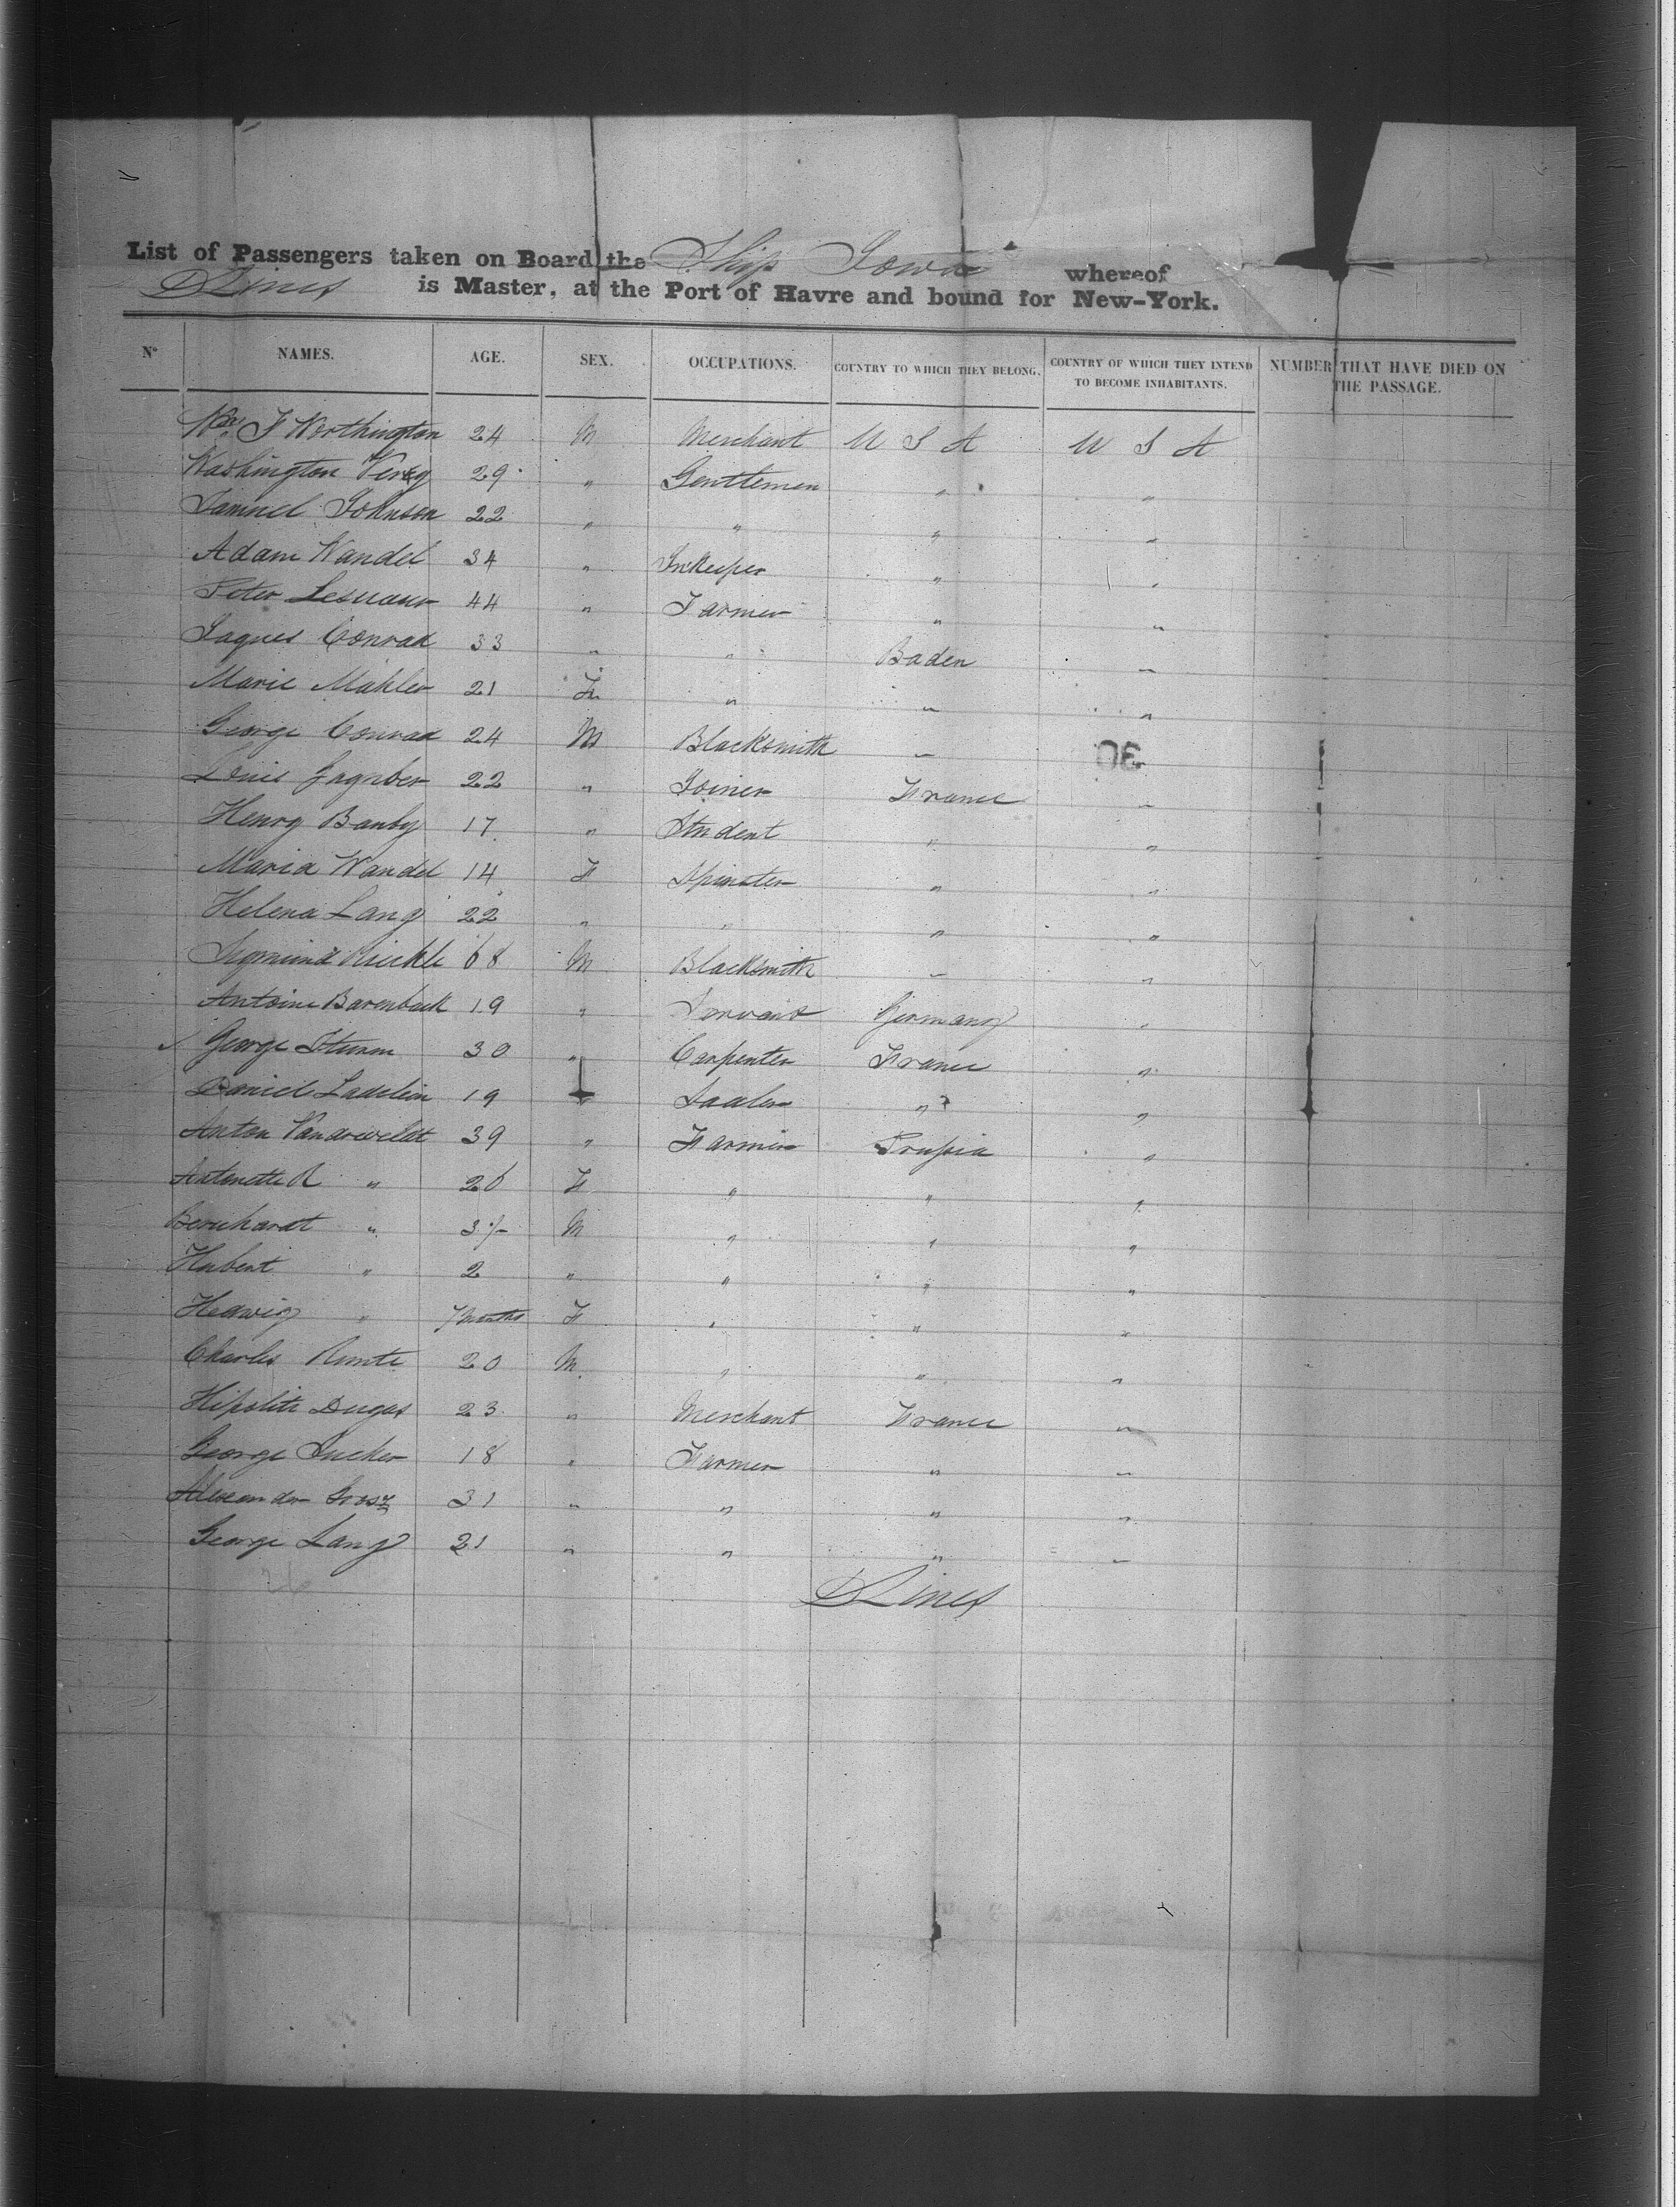 List of Passengers taken on Board the Ship Iowa whereof
Lines is Master, at the Port of Havre and bound for New-York.
N° NAMES. AGE. SEX. OCCUPATIONS. COUNTRY TO WHICH THEY BELONG. COUNTRY OF WHICH THEY INTEND TO BECOME INHABITANTS. NUMBER THAT HAVE DIED ON THE PASSAGE.
Wm J Worthington 24 M Merchant U S A U S A
Washington 29 " Gentlemen " "
Samuel Johnson 22 " " " "
Adam Wandel 34 " Inkeeper " "
Peter 44 " Farmer " "
Jaques Conrad 33 " " Baden "
Marie Mahler 21 F " " "
George Conrad 24 M Blacksmith " "
30
Louis 22 " Joiner France "
Henry Banby 17 " Student " "
Maria Wandel 14 F Spinster " "
Helena Lang 22 " " " "
68 M Blacksmith " "
Antoine Barenback 19 " Servant Germany "
George Sturm 30 " Carpenter France "
Daniel 19 " Sadler " "
Anton 39 " Farmer Prussia "
Antonette R " 26 F " " "
Bernhardt " 3 M " " "
Hubert " 2 " " " "
Hedwig " 7 months F " " "
Charles 20 M " " "
Hipolite Dugas 23 " Merchant France "
George 18 " Farmer " "
Alexander 31 " " " "
George Lang 21 " " " "
26
Lines